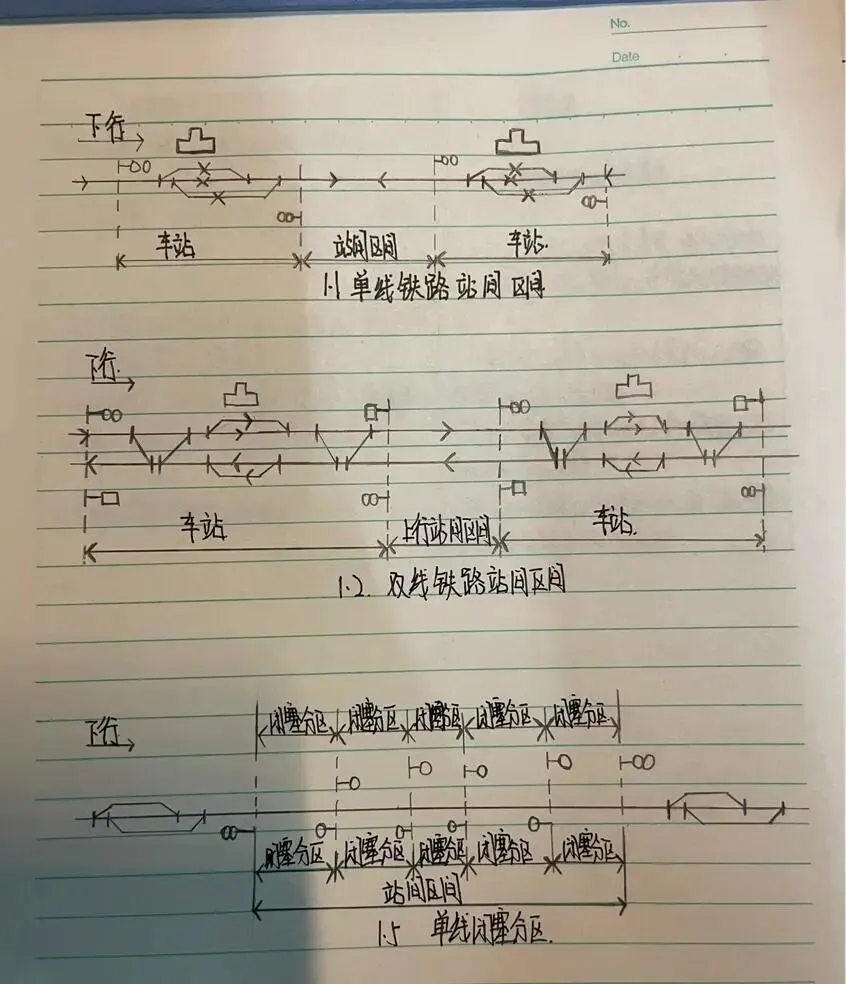 No.
Date
下行
车站 站间区间 车站.
1.1 单线铁路站间区间
下行.
车站 上行站间区间 车站.
1.2. 双线铁路站间区间
下行
闭塞分区 闭塞分区 闭塞分区 闭塞分区 闭塞分区
闭塞分区 闭塞分区 闭塞分区 闭塞分区 闭塞分区
站间区间
1.5 单线闭塞分区.